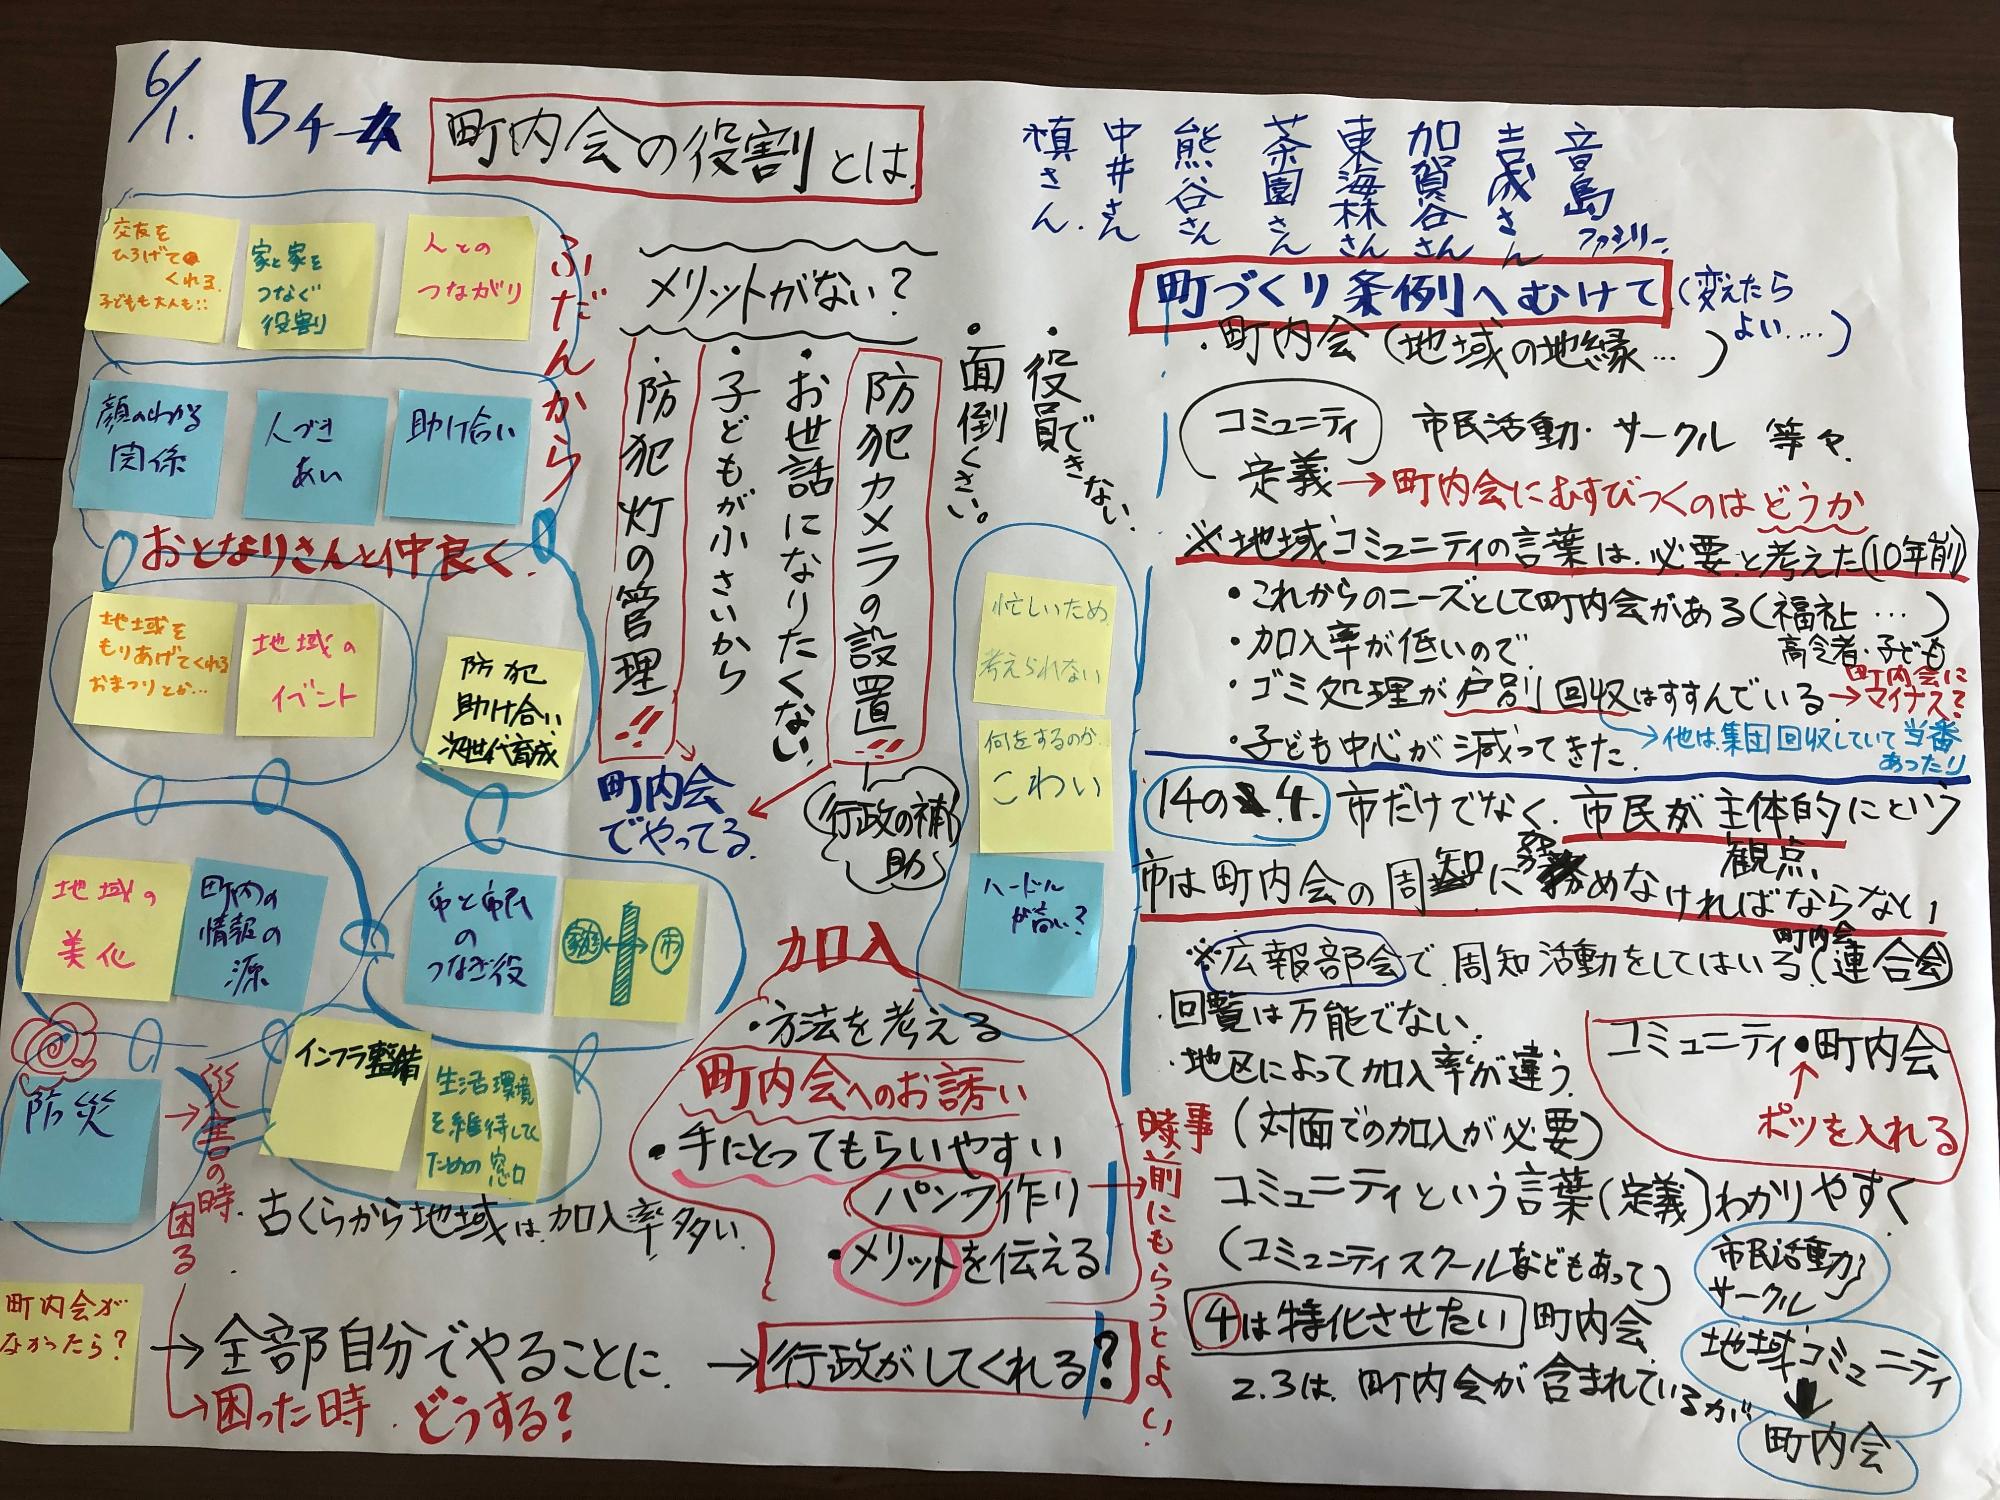 6/1. Bチーム
町内会の役割とは.
槙さん.
中井さん
熊谷さん
茶園さん
東海林さん
加賀谷さん
吉成さん
音島ファミリー.
交友を
ひろげて
くれる.
子どもも大人も!!
家と家を
つなぐ
役割
人との
つながり
ふだんから
顔のわかる
関係
人づき
あい
助け合い
おとなりさんと仲良く.
地域を
もりあげてくれる
おまつりとか…
地域の
イベント
防犯
助け合い
次世代育成
地域の
美化
町内の
情報の
源
市と市民
の
つなぎ役
家庭
市
防災
災害の時.
困る
インフラ整備
生活環境
を維持して
ための窓口
古くらから地域は加入率多い.
町内会が
なかったら?
→全部自分でやることに.
→行政がしてくれる?
→困った時.どうする?
メリットがない?
・役員できない.
・面倒くさい。
防犯カメラの設置!!
・お世話になりたくない.
・子どもが小さいから
・防犯灯の管理!!
町内会
でやってる.
行政の補助
忙しいため
考えられない
何をするのか.
こわい
ハードル
が高い?
加入
・方法を考える
町内会へのお誘い
・手にとってもらいやすい
パンフ作り
→事前にもらうとよい.
・メリットを伝える
町づくり条例へむけて
(変えたら
よい....)
・町内会(地域の地縁…)
コミュニティ
定義
市民活動・サークル 等々.
→町内会にむすびつくのはどうか
※地域コミュニティの言葉は必要と考えた(10年前)
・これからのニーズとして町内会がある(福祉…)
高令者・子ども
・加入率が低いので.
・ゴミ処理が戸別回収はすすんでいる
→町内会に
マイナス?
→他は集団回収していて当番
あったり
・子ども中心が減ってきた.
14の4. 市だけでなく.市民が主体的にという
観点
市は町内会の周知に努めなければならない
※広報部会で周知活動をしてはいる(町内会連合会)
・回覧は万能でない.
・地区によって加入率が違う.
(対面での加入が必要)
コミュニティ・町内会
↑
ポツを入れる
コミュニティという言葉(定義)わかりやすく
(コミュニティスクールなどもあって)
4は特化させたい 町内会.
2.3は.町内会が含まれているが
市民活動
サークル
地域コミュニティ
町内会